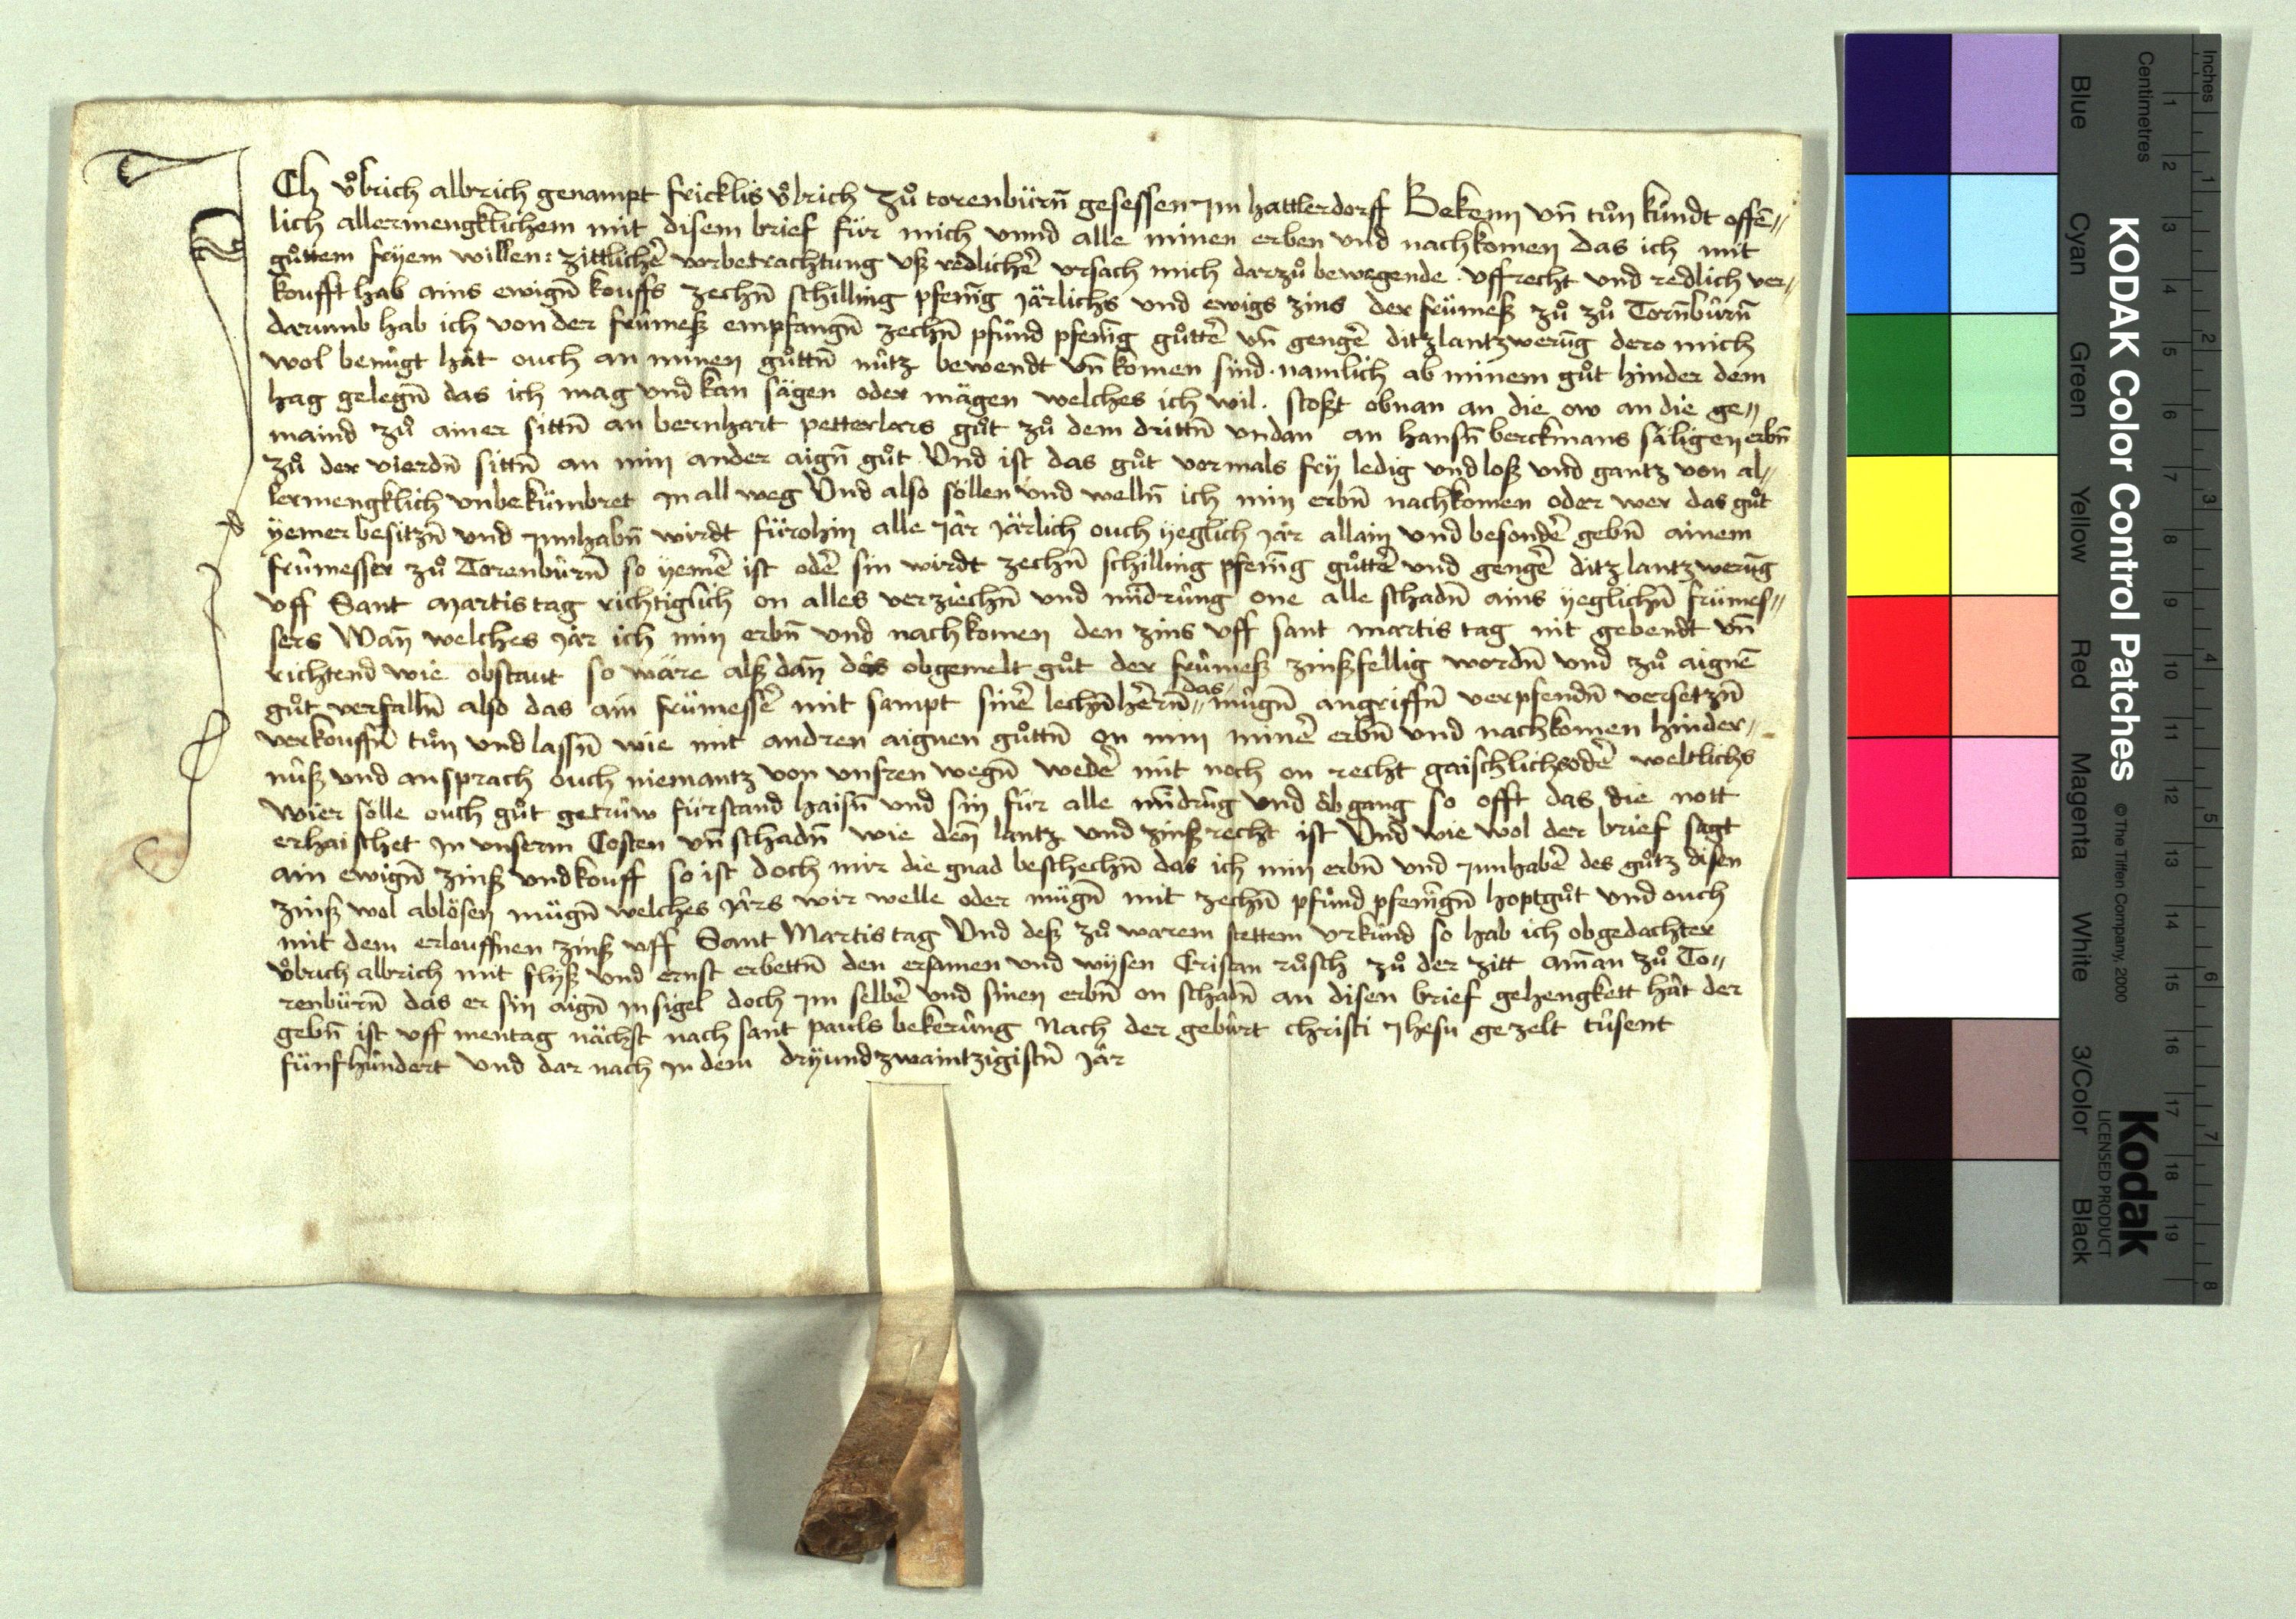 Ich vͦlrich albrich genampt fricklis vͦlrich zuͦ torenbürn̄ gesessen Im hattlerdorff Bekenn vn̄ tuͦn kündt offē„
lich allermengklichem mit disem brief für mich vnnd alle minen erben vnd nachkomen das ich mit
guͦttem fryem willen: zittlichē vorbetrachtung vß redlichē vrsach mich darzuͦ bewegende. vffrecht vnd redlich ver„
koufft hab ains ewign̄ kouffs zechn̄ schilling pfenīg Järlichs vnd ewigs zins der frümeß zuͦ zuͦ Torn̄bürn̄
darumb hab ich von der frümeß empfangn̄ zechn̄ pfund pfenīg guͦttē vn̄ gengē ditz lantzwerūg dero mich
wol benügt hät ouch an minen guͦttn̄ nütz bewendt vn̄ komen sind. namlich ab minem guͦt hinder dem
hag gelegn̄ das ich mag vnd kan sägen oder mägen welches ich wil. stoßt obnan an die ow an die ge„
maind zuͦ ainer sittn̄ an bernhart petterlars guͦt zuͦ dem drittn̄ vndan an hansn̄ berckmans säligen erbn̄
zuͦ der vierdn̄ sittn̄ an min ander aign̄ guͦt Vnd ist das guͦt vormals fry ledig vnd loß vnd gantz von al„
lermengklich vnbekümbret In all weg Vnd also söllen vnd welln̄ ich min erbn̄ nachkomen oder wer das guͦt
yemer besitzn̄ vnd Innhabn̄ wirdt fürohin alle Jär Järlich ouch yeglich Jär allain vnd besondē gebn̄ ainem
frümesser zuͦ Torenbürn̄ so yemē ist odē sin wirdt zechn̄ schilling pfenīg guͦttē vnd gengē ditz lantzwerūg
vff Sant Martis tag richtiglich on alles verziechn̄ vnd mīdrüng one alle schadn̄ ains yeglichn̄ frümes„
sers Wan̄ welches Jär ich min erbn̄ vnd nachkomen den zins vff sant martis tag nit gebendt vn̄
richtend wie obstaut so wäre alß dan̄ das obgemelt guͦt der frümeß zinßfellig wordn̄ vnd zuͦ aignē
guͦt verfalln̄ also das ain frümessē mit sampt sinē lechn̄hērn̄„ das mügn̄ angriffn̄ verpfendn̄ versetzn̄
verkouffn̄ tuͦn vnd lassn̄ wie mit andren aignen guͦttn̄ on min minē erbn̄ vnd nachkomen hinder„
nüß vnd ansprach ouch niemantz von vnsren wegn̄ wedē mit noch on recht gaischlichs odē weltlichs
Wier sölle ouch guͦt getrüw fürstand haisn̄ vnd sin für alle mīdrüg vnd äbgang so offt das die nott
erhaischet In vnserm Costen vn̄ schadn̄ wie den̄ lantz vnd zinßrecht ist Vnd wie wol der brief sagt
ain ewign̄ zinß vnd kouff so ist doch mir die gnad beschechn̄ das ich min erbn̄ vnd Innhabē des guͦtz disen
zinß wol ablösen mügn̄ welches Järs wir welle oder mügn̄ mit zechn̄ pfund pfenīgn̄ hoptguͦt vnd ouch
mit dem erlouffnen zinß vff Sant Martis tag Vnd deß zuͦ warem stettem vrkünd so hab ich obgedachter
vͦlrich albrich mit flyß vnd ernst erbettn̄ den ersamen vnd wysen Cristan ruͦsch zuͦ der zitt am̄an zuͦ To„
renbürn̄ das er sin aign̄ Insigel doch Im selbē vnd sinen erbn̄ on schadn̄ an disen brief gehengkett hät der
gebn̄ ist vff mentag nächst nach sant pauls bekerüng Nach der gebürt christi Jhesu gezelt tüsent
fünfhündert vnd dar nach In dem dryundzwaintzigistn̄ Jär
KODAK Color Control Patches © The Tiffen Company, 2000
Kodak
LICENSED PRODUCT
Blue Cyan Green Yellow Red Magenta White 3/Color Black
Inches 1 2 3 4 5 6 7 8
Centimetres 1 2 3 4 5 6 7 8 9 10 11 12 13 14 15 16 17 18 19